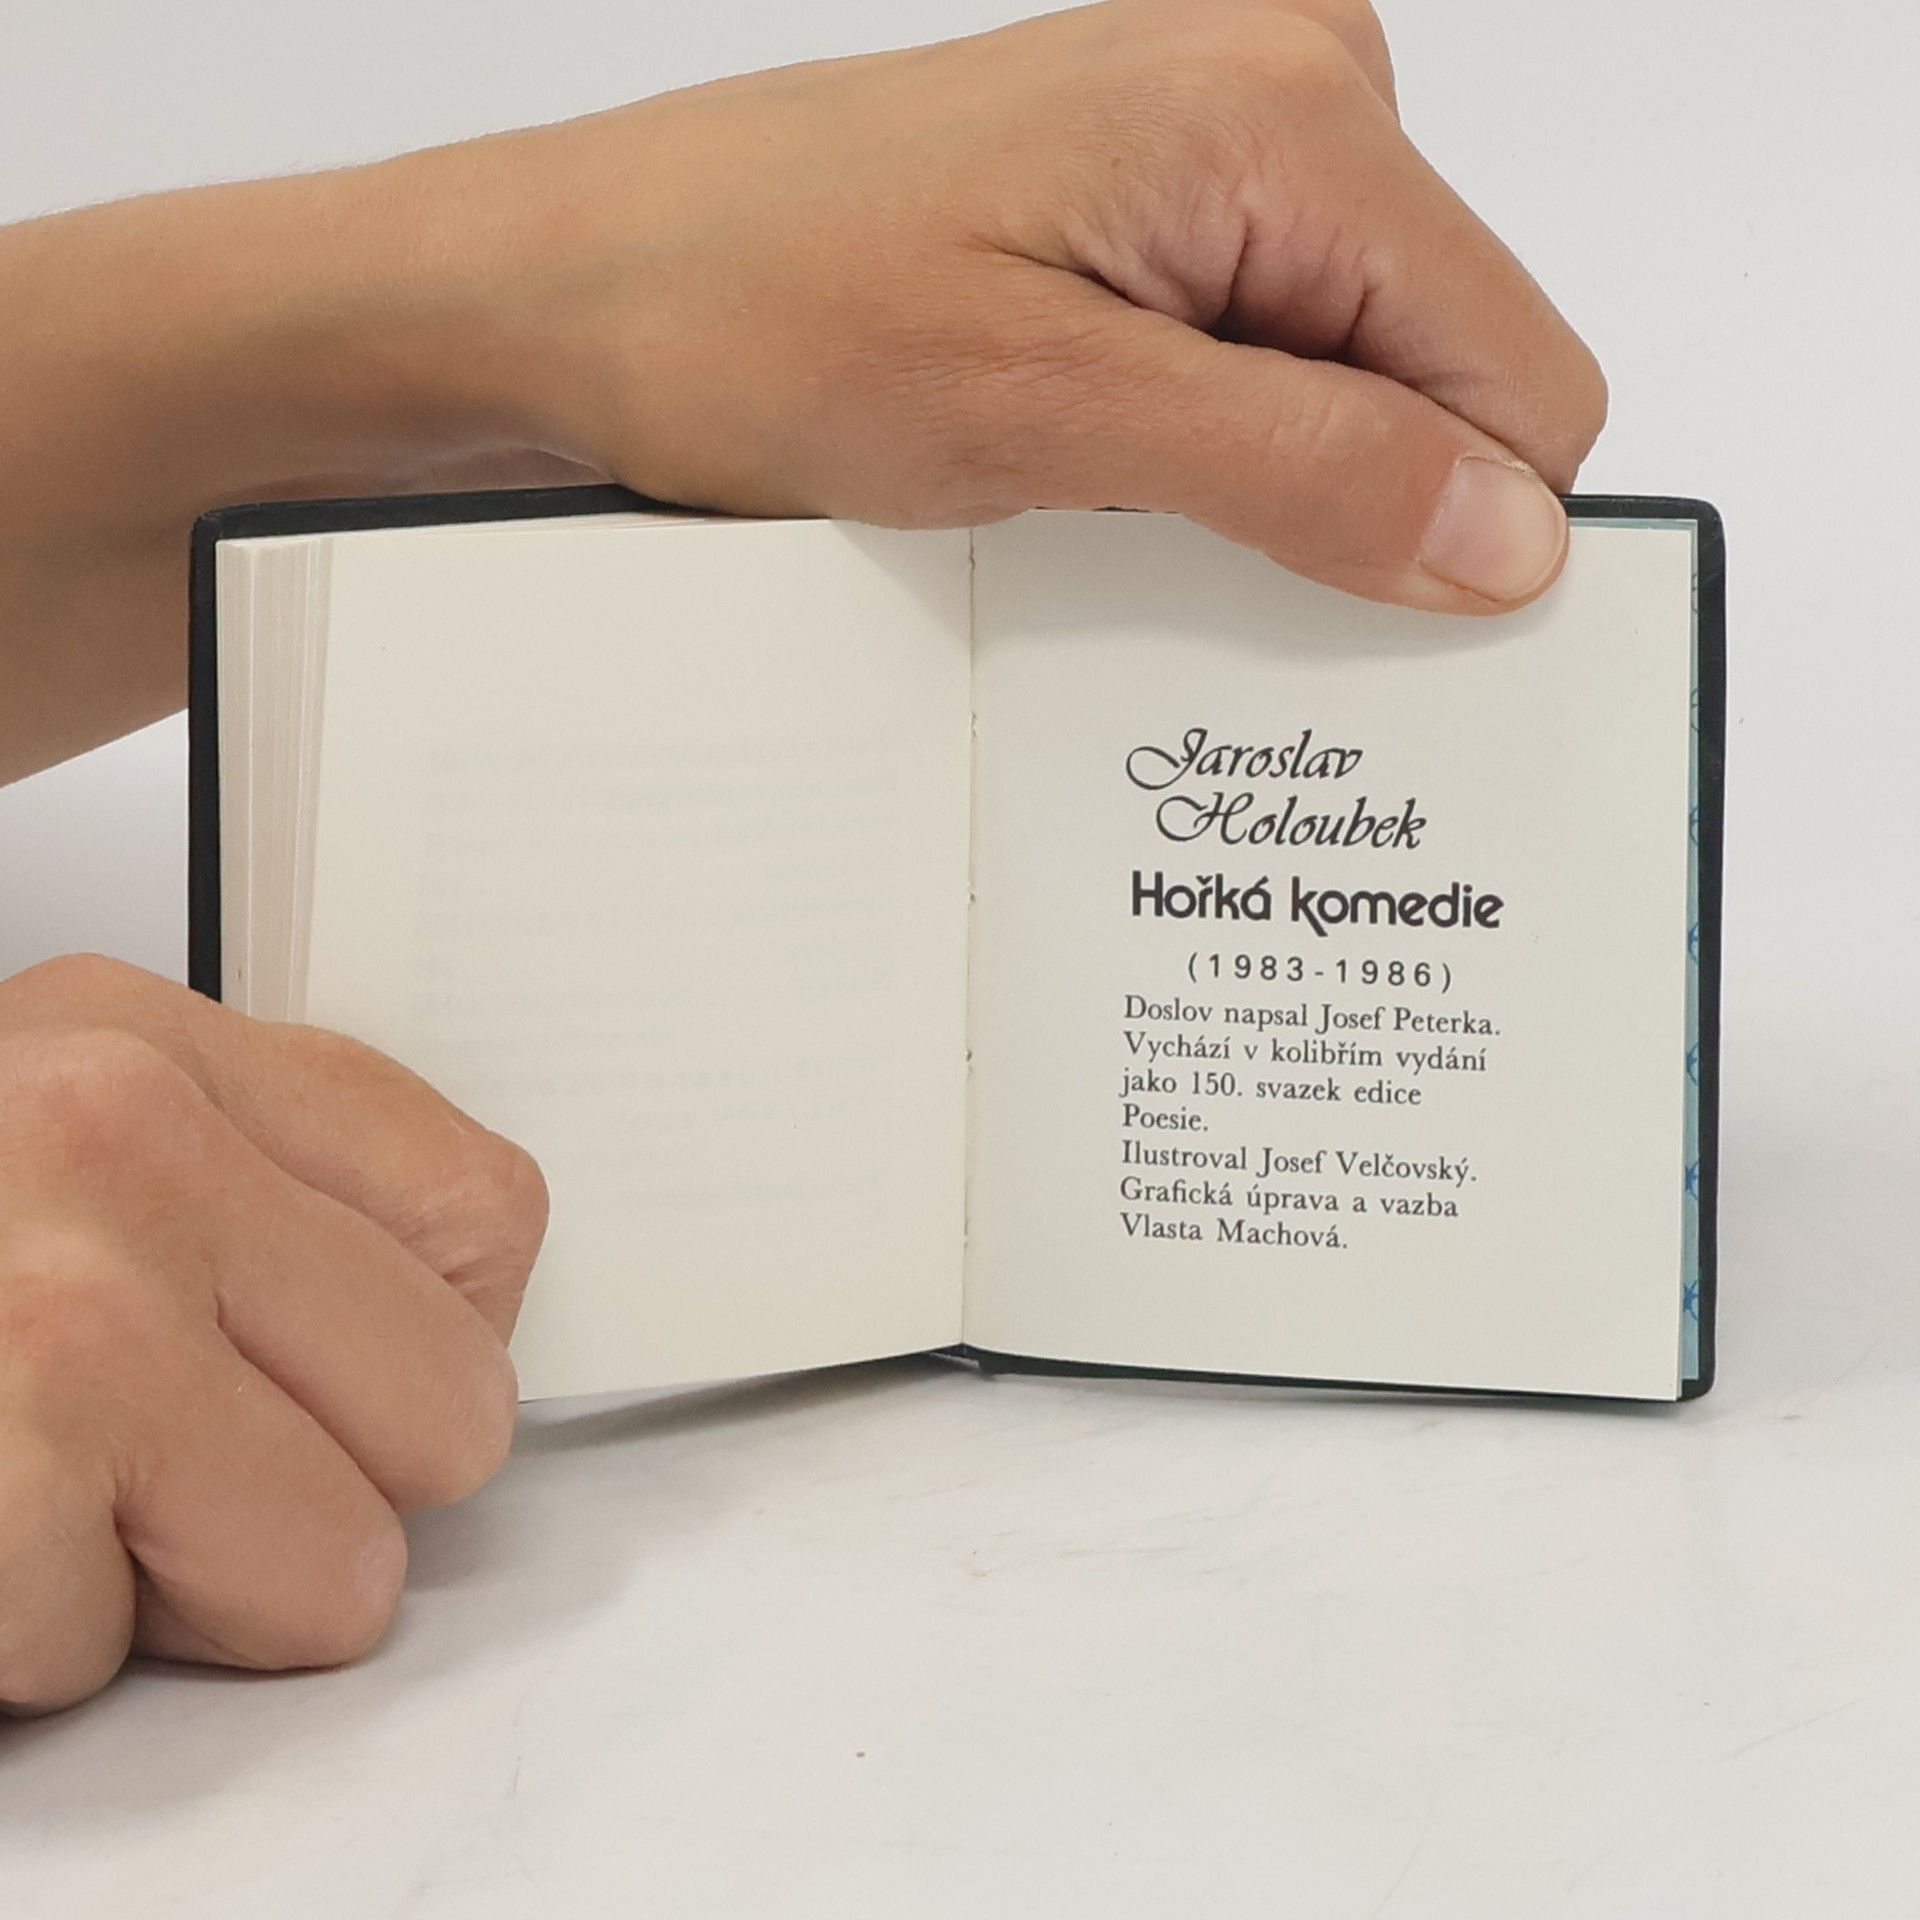 Jaroslav
Holoubek
Hořká komedie
(1983-1986)
Doslov napsal Josef Peterka.
Vychází v kolibřím vydání
jako 150. svazek edice
Poesie.
Ilustroval Josef Velčovský.
Grafická úprava a vazba
Vlasta Machová.